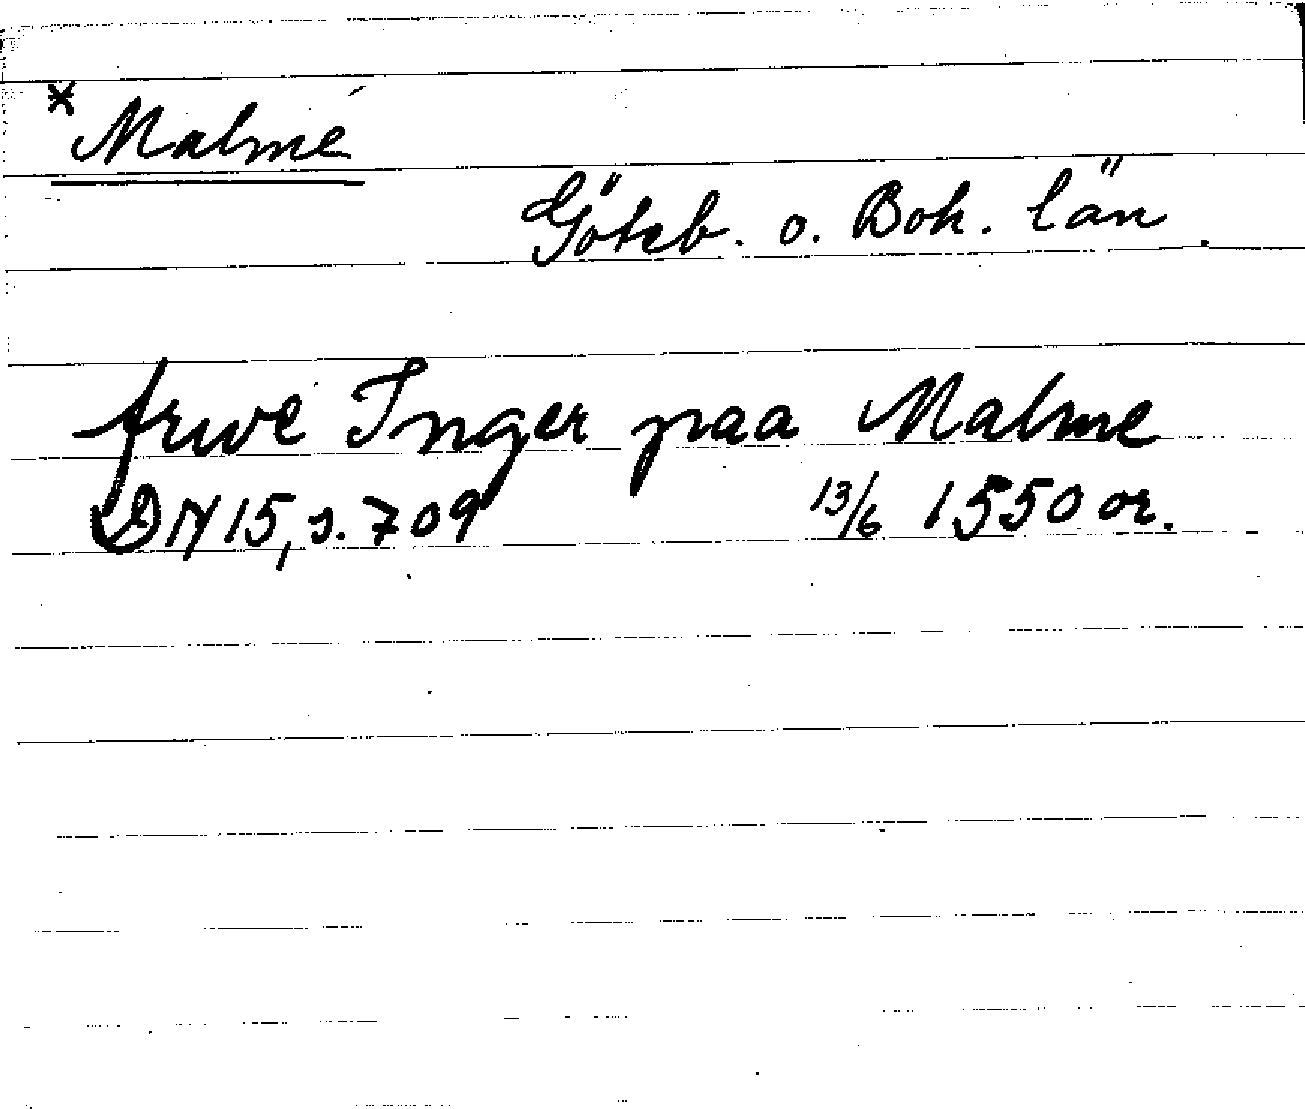 * Malmé
Göteb. o. Boh. län
frwe Inger paa Malme
DN 15, s. 709 13/6 1550 or.